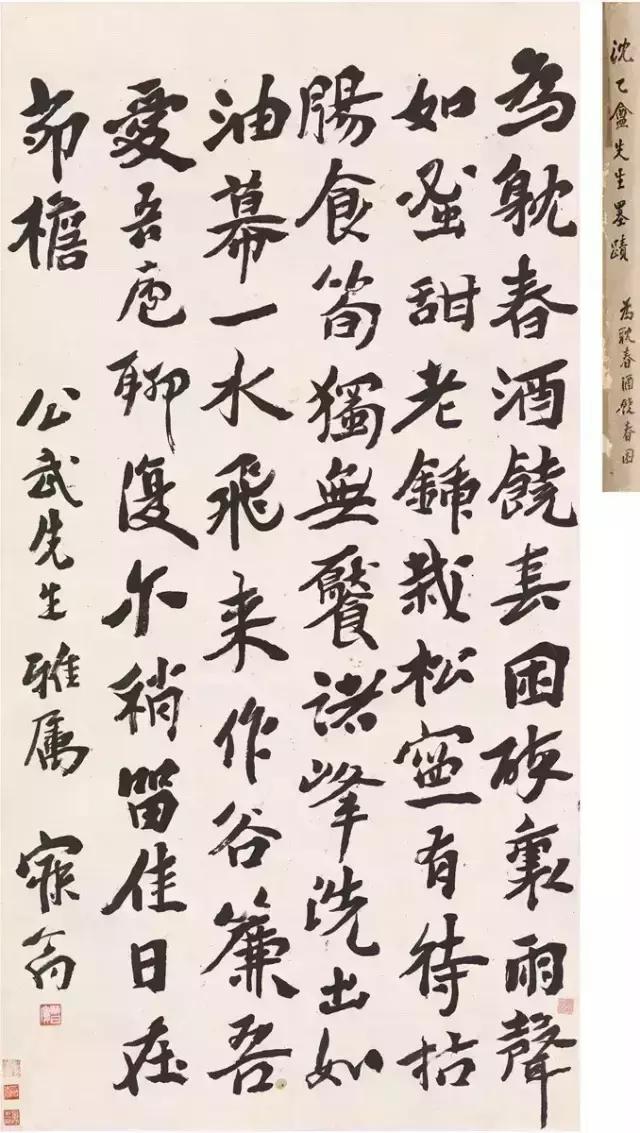 為躭春酒饒春困酔裏雨聲
如蜜甜老鍤栽松寧有待枯
腸食筍獨無饜諸峰洗出如
油幕一水飛来作谷簾吾
愛吾廬聊復尒稍留佳日在
茆檐 公武先生雅属 寐翁
沈乙盦先生墨蹟 為躭春酒饒春困